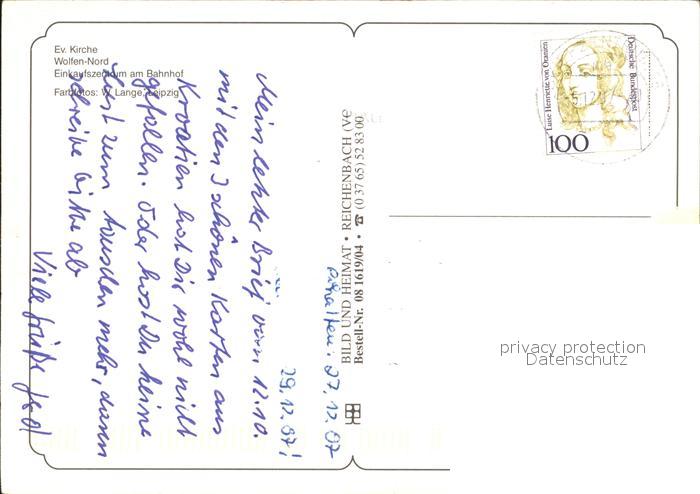 Ev. Kirche
Wolfen-Nord
Einkaufszentrum am Bahnhof
Farbfotos: W. Lange, Leipzig
Mein letzter Brief vom 12.10.
mit den 3 schönen Karten aus
Kroatien hast Dir wohl nicht
gefallen. Oder hast Du keine
Lust zum tauschen mehr, dann
schreibe bitte ab
Viele Grüße
29.12.97!
erhalten: 27.12.97
BILD UND HEIMAT • REICHENBACH (Ve
Bestell-Nr. 08 1619/04 • ☎ (0 37 65) 52 83 00
Luise Henriette von Oranien
Deutsche Bundespost
100
privacy protection
Datenschutz